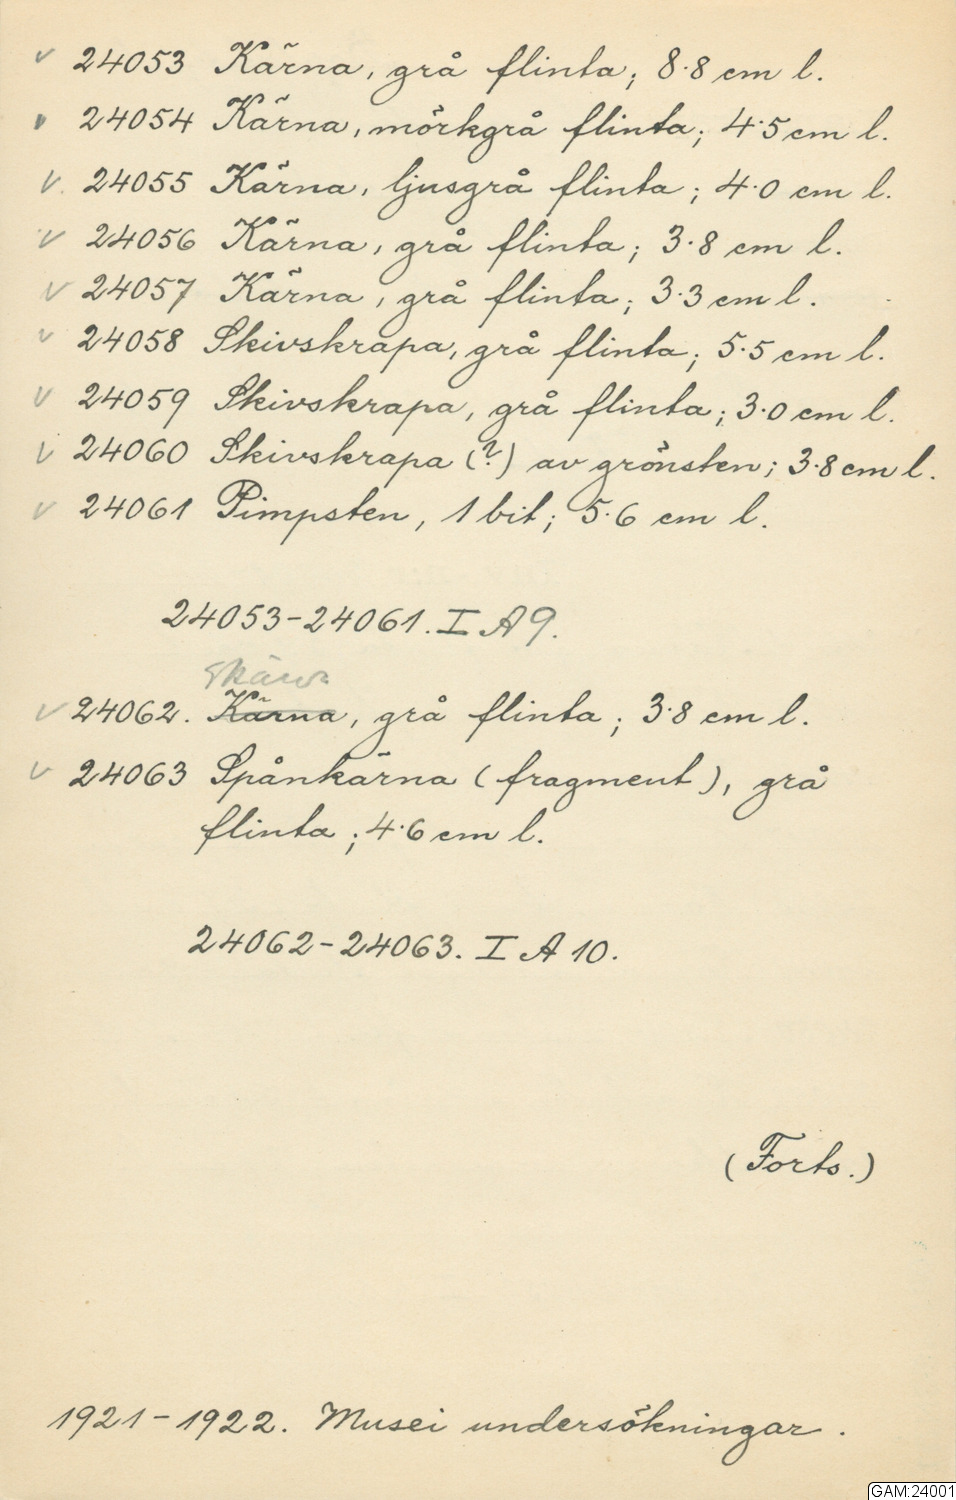 v 24053 Kärna, grå flinta; 8.8 cm l.
v 24054 Kärna, mörkgrå flinta; 4.5 cm l.
v 24055 Kärna, ljusgrå flinta; 4.0 cm l.
v 24056 Kärna, grå flinta; 3.8 cm l.
v 24057 Kärna, grå flinta; 3.3 cm l.
v 24058 Skivskrapa, grå flinta; 5.5 cm l.
v 24059 Skivskrapa, grå flinta; 3.0 cm l.
v 24060 Skivskrapa (?) av grönsten; 3.8 cm l.
v 24061 Pimpsten, 1 bit; 5.6 cm l.
24053-24061. I A 9.
v 24062. Kärna, grå flinta; 3.8 cm l.
v 24063 Spånkärna (fragment), grå
flinta; 4.6 cm l.
24062-24063. I A 10.
(Forts.)
1921-1922. Musei undersökningar.
GAM:24001